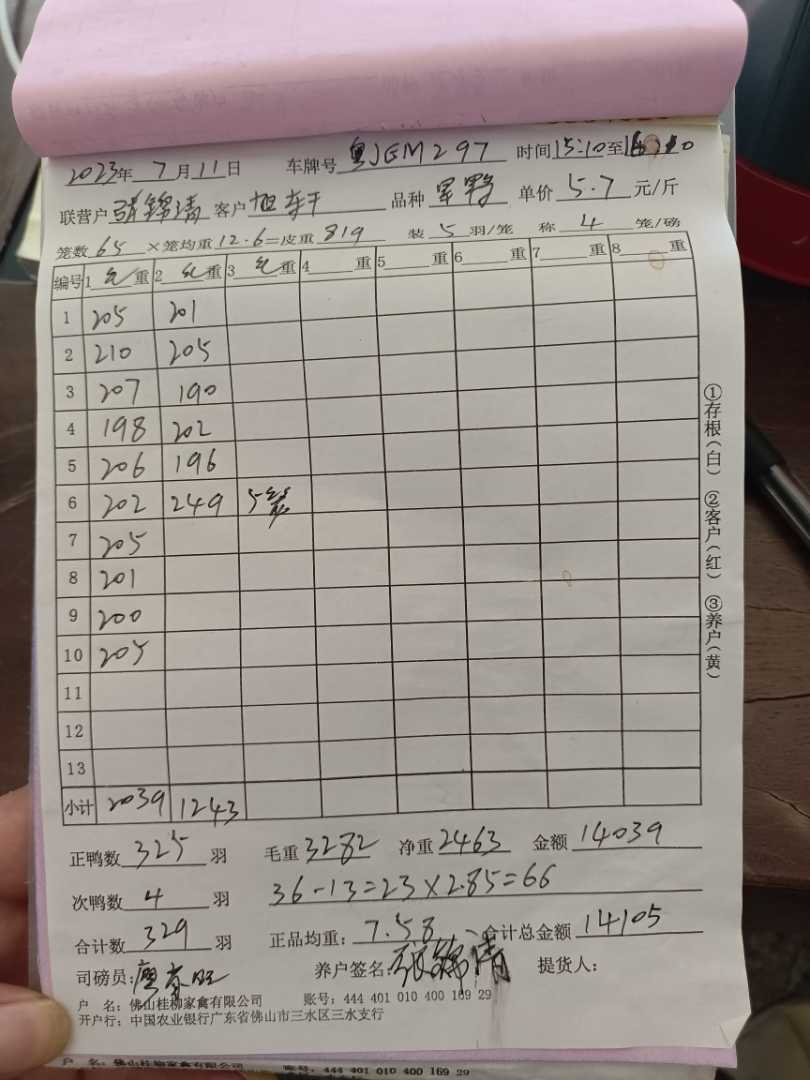 2023年 7 月 11 日 车牌号 粤JGM297 时间 15:10 至
联营户 张锦清 客户 旭轩 品种 单价 5.7 元/斤
笼数 65 ×笼均重 12.6 =皮重 819 装 5 羽/笼 称 4 笼/磅
编号 1 毛 重 2 毛 重 3 毛 重 4 重 5 重 6 重 7 重 8 重
1 205 201
2 210 205
3 207 190
4 198 202
5 206 196
6 202 249 5笼
7 205
8 201
9 200
10 205
11
12
13
小计 2039 1243
正鸭数 325 羽 毛重 3282 净重 2463 金额 14039
次鸭数 4 羽 36-13=23×2.85=66
合计数 329 羽 正品均重: 7.58 合计总金额 14105
司磅员: 养户签名 张锦清 提货人:
户 名: 佛山桂柳家禽有限公司 账号: 444 401 010 400 169 29
开户行: 中国农业银行广东省佛山市三水区三水支行
①存根(白) ②客户(红) ③养户(黄)
户 名: 佛山桂柳家禽有限公司 账号: 444 401 010 400 169 29